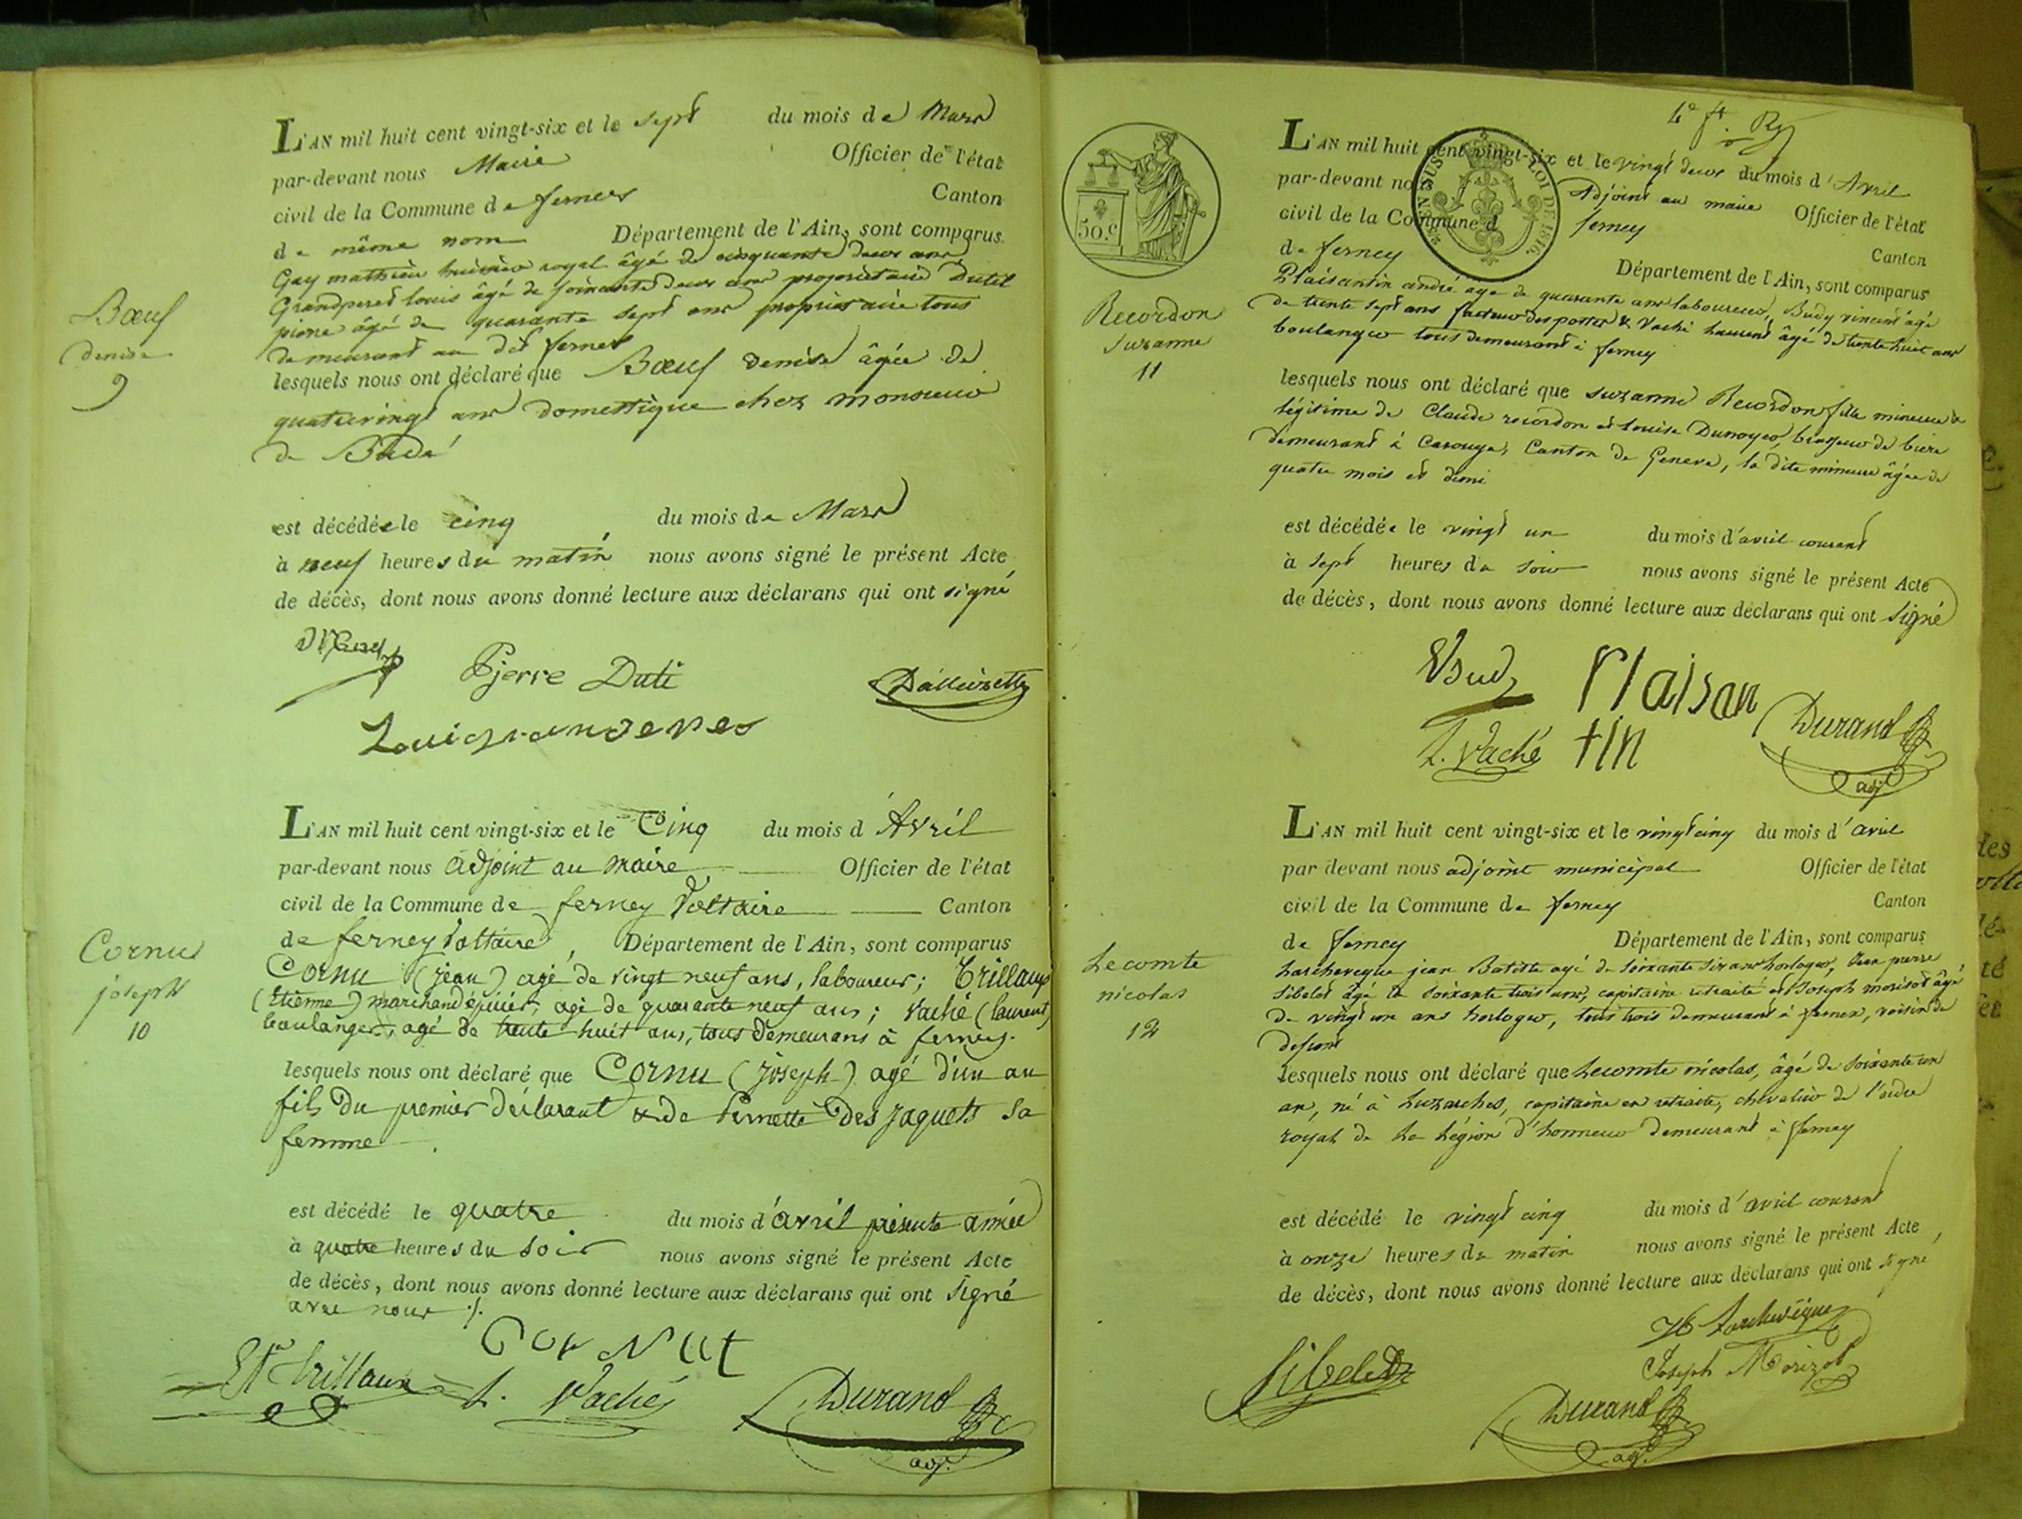 L'AN mil huit cent vingt-six et le sept du mois de Mars
par-devant nous Maire Officier de l'état
civil de la Commune de ferney Canton
de même nom Département de l'Ain, sont comparus
Gay mathieu huissier royal âgé de cinquante deux ans
Grandperret louis âgé de soixante deux ans propriétaire Dutil
pierre âgé de quarante sept ans propriétaire tous
demeurant au dit ferney
Bœuf
denise
9
lesquels nous ont déclaré que Bœuf denise âgée de
quatrevingt ans domestique chez monsieur
de Budé
est décédée le cinq du mois de Mars
à neuf heures du matin nous avons signé le présent Acte
de décès, dont nous avons donné lecture aux déclarans qui ont signé
Pjerre Duti
L'AN mil huit cent vingt-six et le Cinq du mois d'Avril
par-devant nous adjoint au maire Officier de l'état
civil de la Commune de ferney Voltaire Canton
de ferney Voltaire, Département de l'Ain, sont comparus
Cornu (jean) agé de vingt neuf ans, laboureur; Trillaux
(Etienne) marchand épicier, agé de quarante neuf ans; Vaché (laurent)
boulanger, agé de trente huit ans, tous demeurans à ferney.
Cornu
joseph
10
lesquels nous ont déclaré que Cornu (joseph) agé d'un an
fils du premier déclarant & de Pernette Des jaquets sa
femme
est décédé le quatre du mois d'avril présente année
à quatre heures du soir nous avons signé le présent Acte
de décès, dont nous avons donné lecture aux déclarans qui ont signé
avec nous ./.
Cornut
Et Trillaux L. Vaché Durand
adj.
50.c
EN SUS LOI DE 1816
L'AN mil huit cent vingt-six et le vingt deux du mois d'Avril
par-devant nous Adjoint au maire Officier de l'état
civil de la Commune d ferney Canton
de ferney Département de l'Ain, sont comparus
Plaisantin andré âgé de quarante ans laboureur, Budy vincent âgé
de trente sept ans facteur des postes & Vaché laurent âgé de trente huit ans
boulanger tous demeurant à ferney
Recordon
suzanne
11
lesquels nous ont déclaré que suzanne Recordon fille mineure &
légitime de Claude recordon et louise Dunoyer, brasseur de biere
demeurant à Carouge, Canton de Geneve, la dite mineure âgée de
quatre mois et demi
est décédée le vingt un du mois d'avril courant
à sept heures du soir nous avons signé le présent Acte
de décès, dont nous avons donné lecture aux déclarans qui ont signé
VBudy Plaisan
L. Vaché tin Durand
adj.
L'AN mil huit cent vingt-six et le vingt cinq du mois d'avril
par devant nous adjoint municipal Officier de l'état
civil de la Commune de ferney Canton
de ferney Département de l'Ain, sont comparus
Larcheveque jean Batiste agé de soixante six ans horloger, Jean pierre
Sibelet âgé de soixante trois ans, capitaine retraité et Joseph morisot âgé
de vingt un ans horloger, tous trois demeurant à ferney, voisin de
defunt
Lecomte
nicolas
12
lesquels nous ont déclaré que Lecomte nicolas, âgé de soixante un
an, né à Luzarches, capitaine en retraite, chevalier de l'ordre
royal de la Légion d'honneur demeurant à ferney
est décédé le vingt cinq du mois d'avril courant
à onze heures de matin nous avons signé le présent Acte
de décès, dont nous avons donné lecture aux déclarans qui ont signé
Larchevêque
Sibelet Joseph Morizot
Durand
adj.